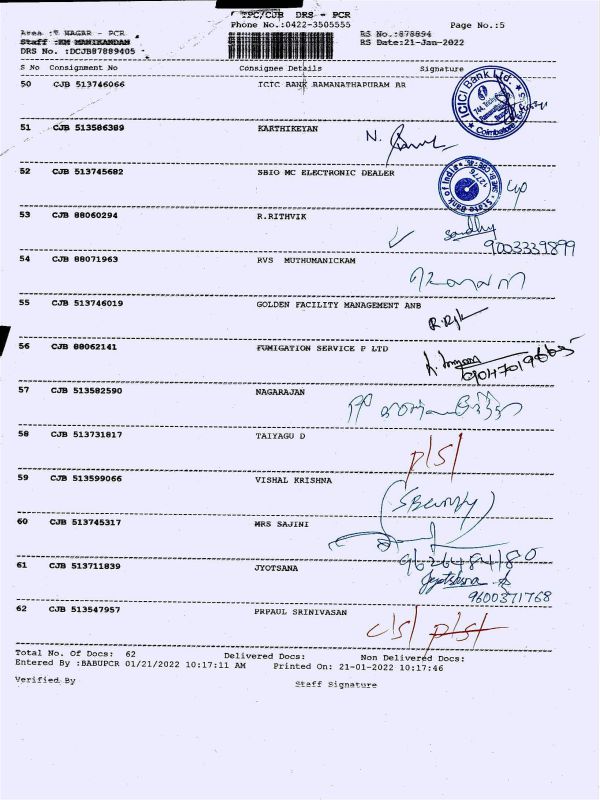 TPC/CJB DRS - PCR
Phone No.:0422-3505555 Page No.:5
Area : NAGAR - PCR RS No.:878894
Staff :KM MANIKANDAN RS Date:21-Jan-2022
DRS No. :DCJB87889405
S No Consignment No Consignee Details Signature
50 CJB 513746066 ICIC BANK RAMANATHAPURAM BR
ICICI Bank Ltd.
Coimbatore
51 CJB 513586389 KARTHIKEYAN
N.
52 CJB 513745682 SBIO MC ELECTRONIC DEALER
State Bank of India
12776
53 CJB 88060294 R.RITHVIK
sandhy
9003339899
54 CJB 88071963 RVS MUTHUMANICKAM
55 CJB 513746019 GOLDEN FACILITY MANAGEMENT ANB
56 CJB 88062141 FUMIGATION SERVICE P LTD
57 CJB 513582590 NAGARAJAN
58 CJB 513731817 TAIYAGU D
p/s/
59 CJB 513599066 VISHAL KRISHNA
60 CJB 513745317 MRS SAJINI
9626484180
61 CJB 513711839 JYOTSANA
Jyotshna
9600371768
62 CJB 513547957 PRPAUL SRINIVASAN
c/s/ p/s/
Total No. Of Docs: 62 Delivered Docs: Non Delivered Docs:
Entered By :BABUPCR 01/21/2022 10:17:11 AM Printed On: 21-01-2022 10:17:46
Verified By Staff Signature